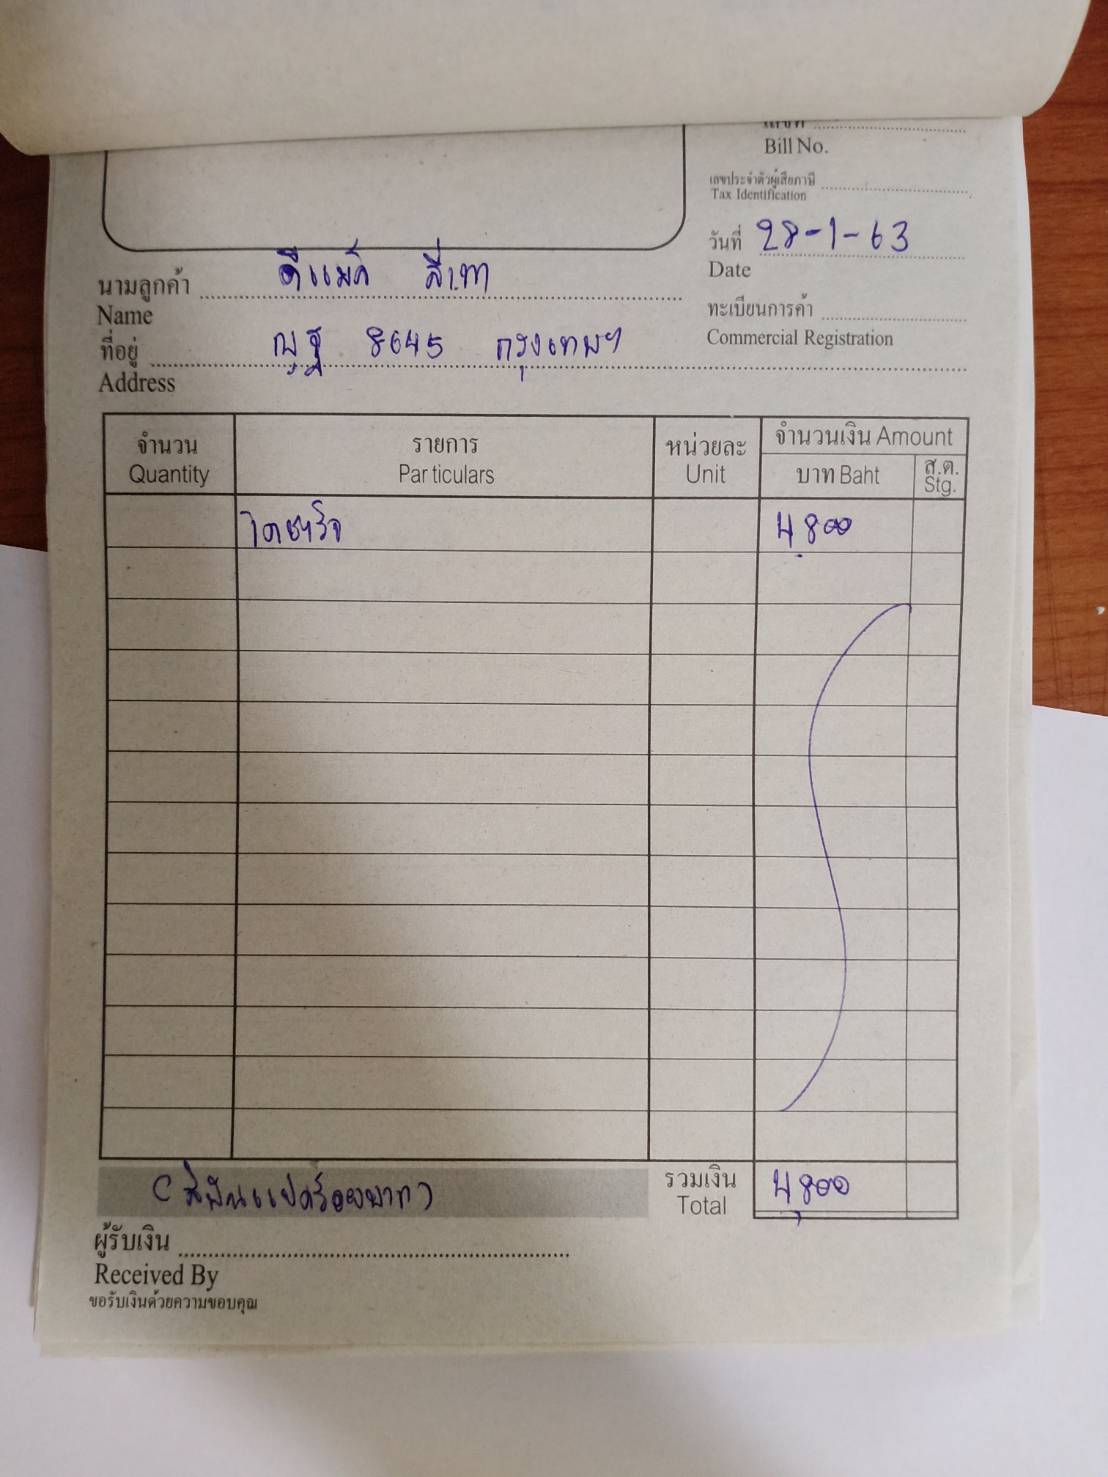 Bill No.
เลขประจำตัวผู้เสียภาษี
Tax Identification
วันที่ 28-1-63
Date
นามลูกค้า ดีแม็ก สีเทา
Name
ทะเบียนการค้า
Commercial Registration
ที่อยู่ ณฐ 8645 กรุงเทพฯ
Address
จำนวน รายการ หน่วยละ จำนวนเงิน Amount
Quantity Particulars Unit บาท Baht ส.ต. Stg.
ไดชาร์จ 4,800
(สี่พันแปดร้อยบาท) รวมเงิน 4,800
Total
ผู้รับเงิน
Received By
ขอรับเงินด้วยความขอบคุณ